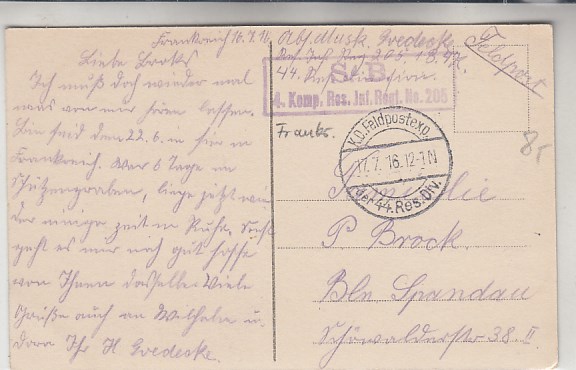 Frankreich 16.7.16
Liebe Brocks
Ich muß doch wieder mal
was von mir hören lassen.
Bin seid dem 22.6. in hir in
Frankreich. War 6 Tage im
Schützengraben, liege jetzt wie
der einige zeit in Ruhe. Sonst
geht es mir noch gut hoffe
von Ihnen dasselbe Viele
Grüße auch an Wilhelm u.
dora Ihr H Goedecke.
Abs. Musk. Goedecke
Res. Inf. Reg 205, 1 B. 4 K.
44. Res. Division.
Feldpost
S. B.
4. Komp. Res. Inf. Regt. No. 205
Frankr.
K.D. Feldpostexp.
17.7.16. 12-1N
der 44. Res. Div.
Familie
P Brock
Bln Spandau
Schönwalderstr 38. II